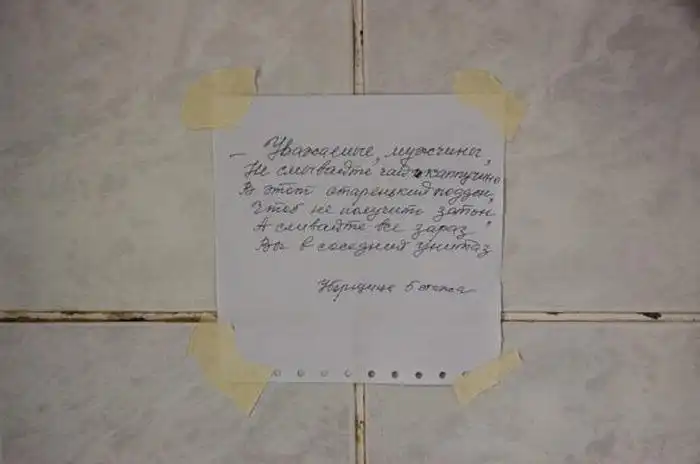 – Уважаемые мужчины,
Не смывайте чай и каппучино
В этот старенький поддон,
Чтоб не получить затон.
А сливайте все зараз
Вы в соседний унитаз
Уборщица 5 этажа